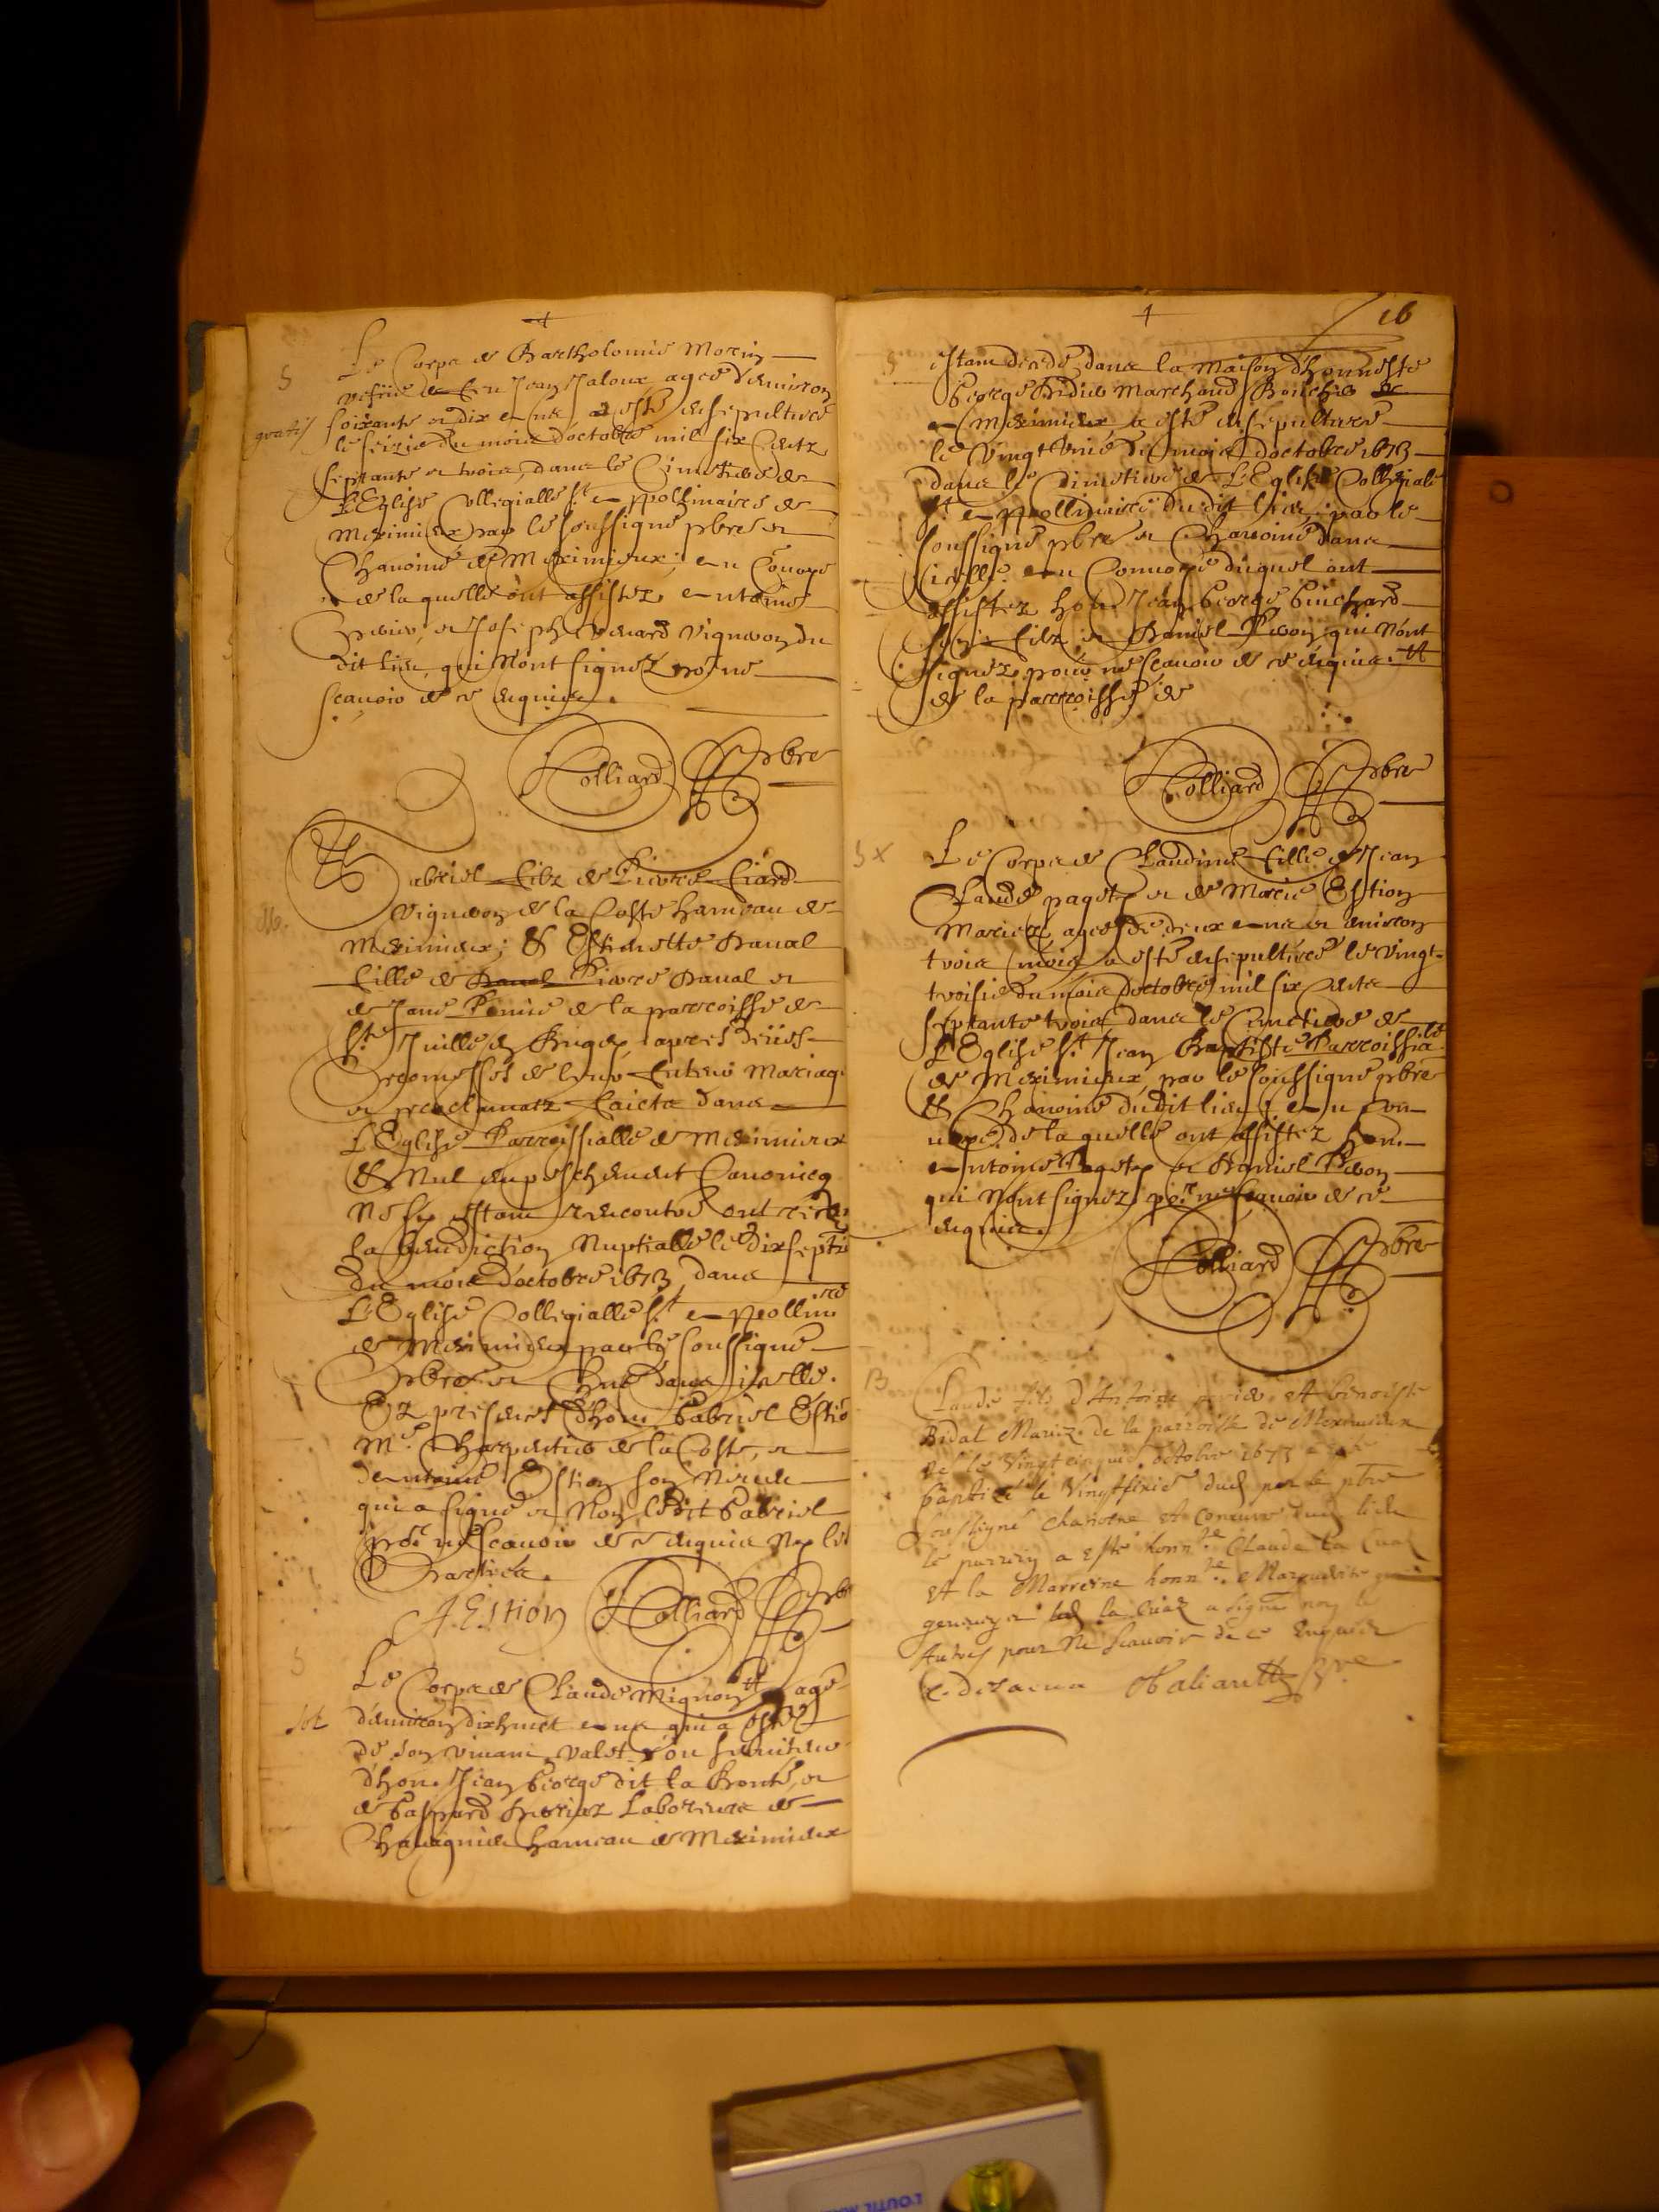 S
Le Corps de Bartholomie Morin
vefue de feu Jean Jaloux agee denviron
gratis
soixante et dix ans a esté ensepulturé
le seizie du mois doctobre mil six centz
septante et trois, dans le Cimetiere de
L'Eglise Collegialle St Appollinaire de
Meximieux par le soussigné pbre et
Chanoine de Meximieux; au Convoye
de laquelle ont assistez Antoine
et Joseph vigneron du
dit lieu, qui N'ont signez po.r ne
scavoir de ce enquis.
Rolliard pbre
M.
Gabriel filz de Pierre fiard
vigneron de la Coste hameau de
Meximieux; & Estiennette Danal
fille de Pierre Danal et
de Jane de la parroisse de
Ste Juille apres deües
promesses de leur futur Mariage
et proclamatz faicts dans
L'Eglise Parroissialle de Meximieux
& Nul empeschement Canonicq
Ne sy estant rencontré ont
la benediction Nuptialle le dixseptie
du mois d'octobre 1673 dans
L'Eglise Collegialle St Appollinaire
de Meximieux par le soussigné
pbre et Chne dans icelle.
Ez presences d'hon. Gabriel Estion
Me. Charpentier de la Coste, et
d'Antoine Estion son Neveu
qui a signé et Non ledit Gabriel
po.r ne Scavoir de ce enquis Ny les
Parties.
A. Estion Rolliard pbre
S
Le Corps de Claude Mignon agé
sol
d'environ dixhuict ans qui a esté
de son vivant valet ou serviteur
d'hon. Jean George dit la Bonté, et
de Gaspard Laboreurs de
Chavagnieu hameau de Meximieux
16
S
estant decedé dans la Maison d'honneste
George Didier Marchand Bouchier
a Meximieux a esté ensepulturé
le Vingt Unie du mois doctobre 1673
dans le Cimetiere de L'Eglise Collegiale
St Appollinaire dudit lieu par le
soussigné pbre et Chanoine dans
icelle. au Convoye duquel ont
assistez hon. Jean George Guichard
son filz et Daniel qui N'ont
signez pour ne scavoir de ce enquis.
de la parroisse de
Rolliard pbre
S X
Le Corps de Claudine fille de Jean
Claude paget et de Marie Estion
Mariez, agee de deux ans et environ
trois mois a esté ensepulturé le vingt-
troisie du mois doctobre mil six cents
septante trois, dans le Cimetiere de
L'Eglise St Jean Baptiste Parroissialle
de Meximieux, par le soussigné pbre
& Chanoine dudit lieu; au con-
voye de laquelle ont assistez hon.
Antoine Paget et Daniel
qui N'ont signez po.r ne scavoir de ce
enquis.
Rolliard pbre
B
Claude fils d'Antoine et benoiste
Bidal Mariez de la parroisse de Meximieux
né le vingt cinquie. octobre 1673 a esté
baptizé le Vingtsixie dud par le pbre
soussigné chanoine et dud lieu
le parrin a esté honn.te Claude la Cuaz
et la Marreine honn.te Marguerite
la Cuaz a signé non les
Autres pour ne scavoir de ce Enquis